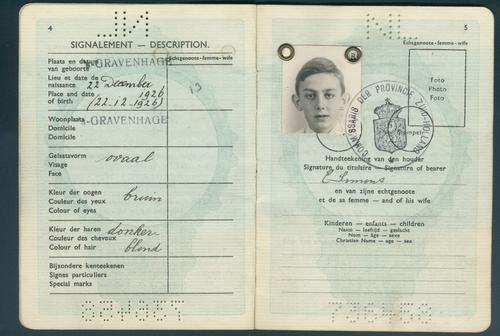 4
SIGNALEMENT — DESCRIPTION.
Plaats en datum
van geboorte
'S-GRAVENHAGE
Echtgenoote-femme-wife
Lieu et date de
naissance 22 December
Place and date 1926
of birth (22.12.1926)
13
Woonplaats
'S-GRAVENHAGE
Domicile
Domicile
Gelaatsvorm
Visage
Face
ovaal
Kleur der oogen
Couleur des yeux
Color of eyes
bruin
Kleur der haren
Couleur des cheveux
Colour of hair
donker-
blond
Bijzondere kenteekenen
Signes particuliers
Special marks
5
NL
Echtgenoote-femme-wife
Foto
Photo
Foto
DER PROVINCIE ZUID-HOLLAND
(Stempel)
Handteekening van den houder
Signature du titulaire — Signature of bearer
en van zijne echtgenoote
et de sa femme — and of his wife
Kinderen — enfants — children
Naam — leeftijd — geslacht
Nom — age — sexe
Christian Name — age — sex